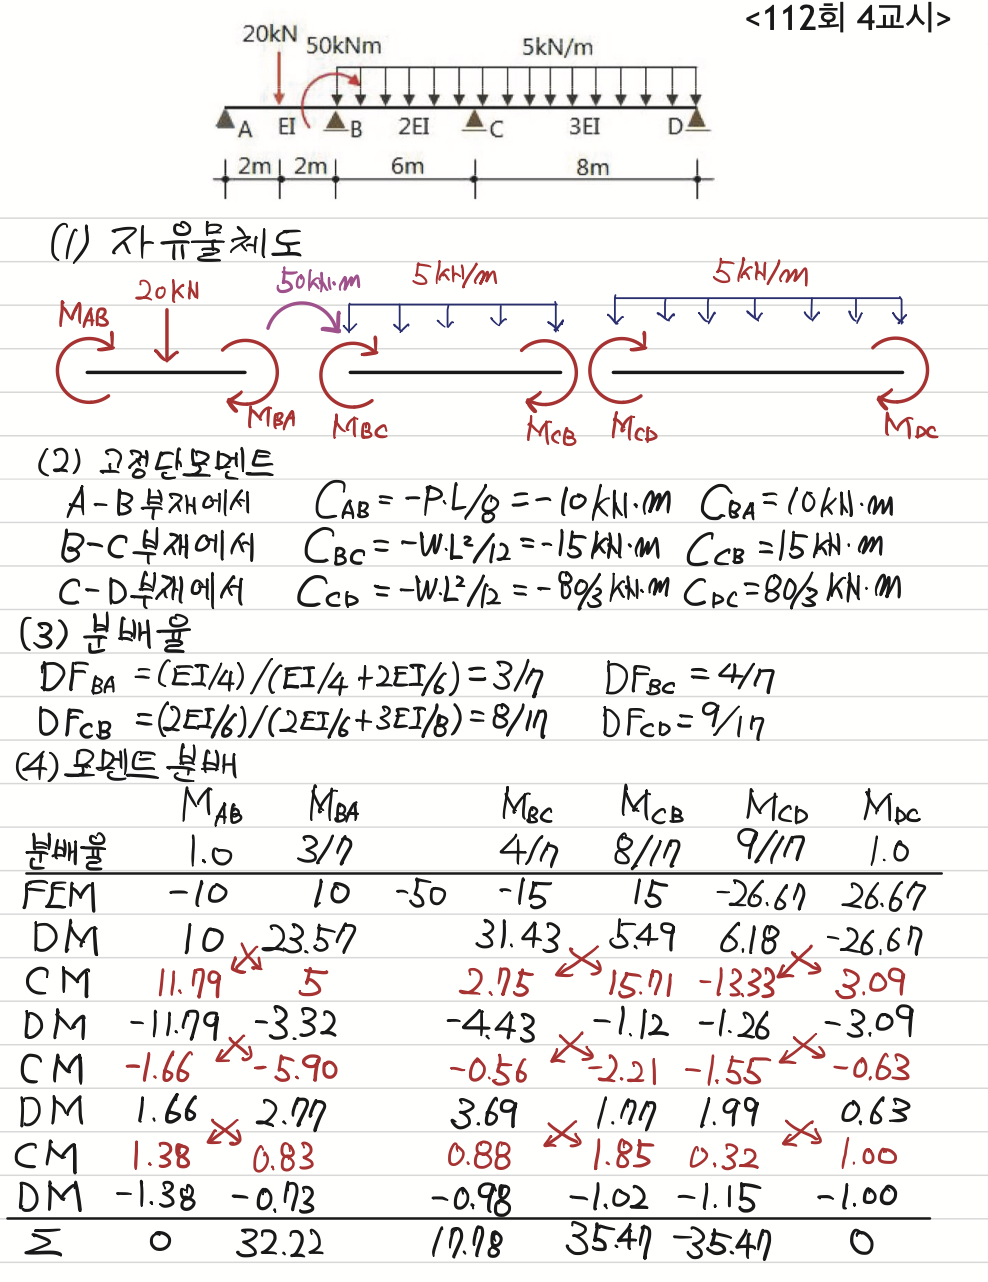 <112회 4교시>
20kN 50kNm 5kN/m
A EI B 2EI C 3EI D
2m 2m 6m 8m
(1) 자유물체도
20kN 50kN·m 5kN/m 5kN/m
M_AB M_BA M_BC M_CB M_CD M_DC
(2) 고정단모멘트
A-B 부재에서 C_AB = -P·L/8 = -10kN·m C_BA = 10kN·m
B-C 부재에서 C_BC = -W·L²/12 = -15kN·m C_CB = 15kN·m
C-D부재에서 C_CD = -W·L²/12 = -80/3 kN·m C_DC = 80/3 kN·m
(3) 분배율
DF_BA = (EI/4)/(EI/4+2EI/6) = 3/7 DF_BC = 4/7
DF_CB = (2EI/6)/(2EI/6+3EI/8) = 8/17 DF_CD = 9/17
(4) 모멘트 분배
M_AB M_BA M_BC M_CB M_CD M_DC
분배율 1.0 3/7 4/7 8/17 9/17 1.0
FEM -10 10 -50 -15 15 -26.67 26.67
DM 10 23.57 31.43 5.49 6.18 -26.67
CM 11.79 5 2.75 15.71 -13.33 3.09
DM -11.79 -3.32 -4.43 -1.12 -1.26 -3.09
CM -1.66 -5.90 -0.56 -2.21 -1.55 -0.63
DM 1.66 2.77 3.69 1.77 1.99 0.63
CM 1.38 0.83 0.88 1.85 0.32 1.00
DM -1.38 -0.73 -0.98 -1.02 -1.15 -1.00
Σ 0 32.22 17.78 35.47 -35.47 0